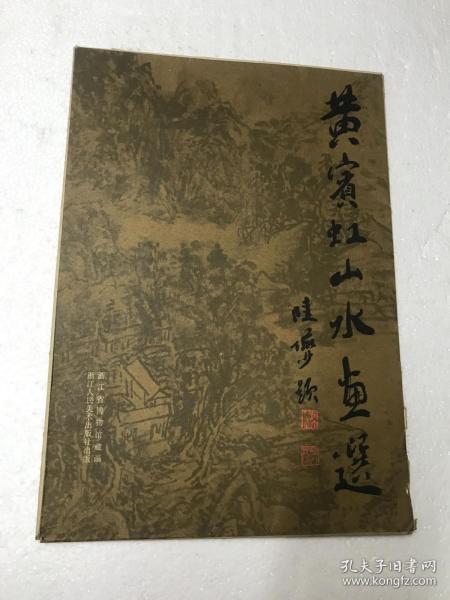 黄賓虹山水画選
陸儼少題
浙江省博物馆藏画
浙江人民美术出版社出版
孔夫子旧书网
www.kongfz.com